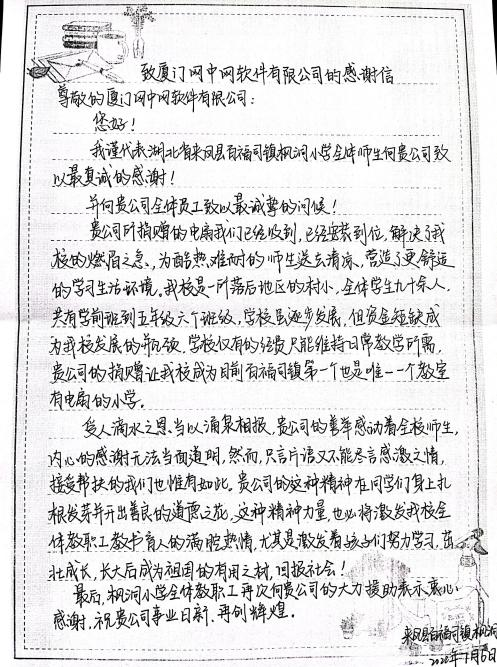 致厦门网中网软件有限公司的感谢信
尊敬的厦门网中网软件有限公司：
您好！
我谨代表湖北省来凤县百福司镇枫洞小学全体师生向贵公司致
以最真诚的感谢！
并向贵公司全体员工致以最诚挚的问候！
贵公司所捐赠的电扇我们已经收到，已经安装到位，解决了我
校的燃眉之急，为酷热难耐的师生送去清凉，营造了更舒适
的学习生活环境。我校是一所落后地区的村小，全体学生九十余人，
共有学前班到五年级六个班级，学校虽逐步发展，但资金短缺成
为我校发展的瓶颈，学校仅有的经费只能维持日常教学所需，
贵公司的捐赠让我校成为目前百福司镇第一个也是唯一一个教室
有电扇的小学。
受人滴水之恩，当以涌泉相报，贵公司的善举感动着全校师生，
内心的感谢无法当面道明，然而，只言片语又不能尽言感激之情，
接受帮扶的我们也惟有如此。贵公司的这种精神在同学们身上扎
根发芽并开出善良的道德之花，这种精神力量，也必将激发我校全
体教职工教书育人的满腔热情，尤其是激发着孩子们努力学习，茁
壮成长，长大后成为祖国的有用之材，回报社会！
最后，枫洞小学全体教职工再次向贵公司的大力援助表示衷心
感谢，祝贵公司事业日新，再创辉煌。
来凤县百福司镇枫洞
年7月